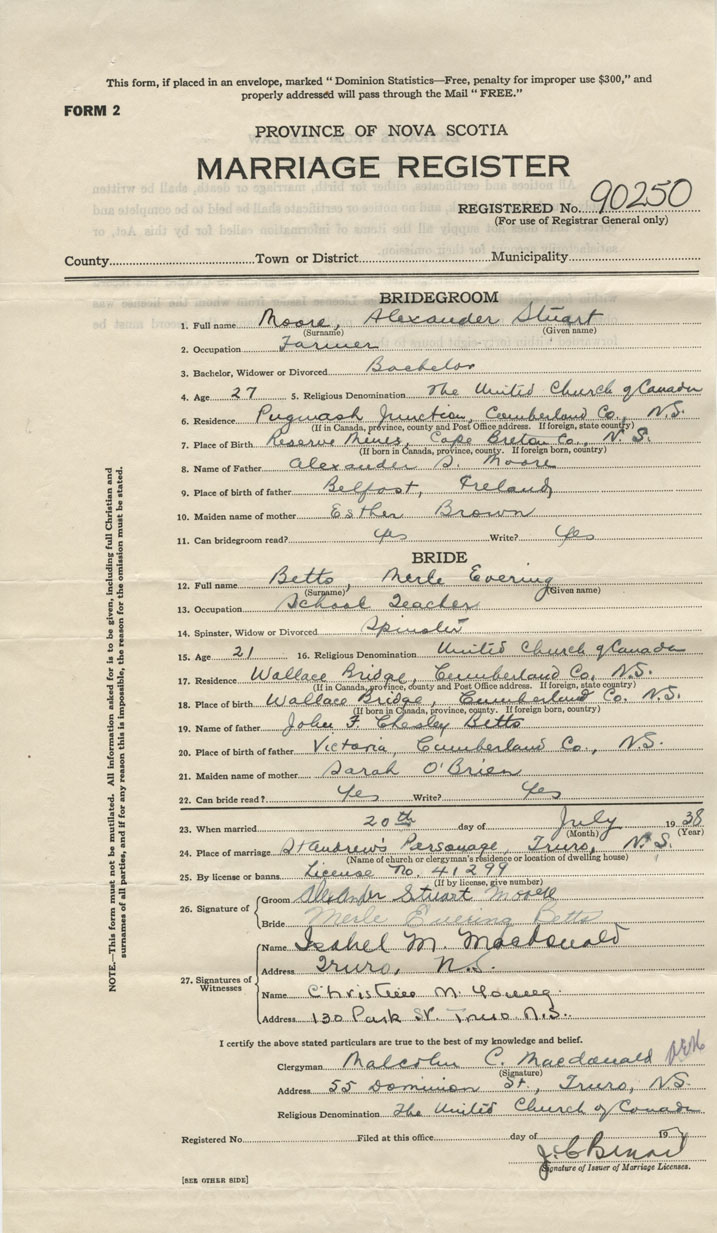 This form, if placed in an envelope, marked " Dominion Statistics—Free, penalty for improper use $300," and
properly addressed will pass through the Mail " FREE."
FORM 2
PROVINCE OF NOVA SCOTIA
MARRIAGE REGISTER
REGISTERED No. 90250
(For use of Registrar General only)
County Town or District Municipality
BRIDEGROOM
1. Full name Moore, Alexander Stuart
(Surname) (Given name)
2. Occupation Farmer
3. Bachelor, Widower or Divorced Bachelor
4. Age 27 5. Religious Denomination The United Church of Canada
6. Residence Pugwash Junction, Cumberland Co., N.S.
(If in Canada, province, county and Post Office address. If foreign, state country)
7. Place of Birth Reserve Mines, Cape Breton Co., N.S.
(If born in Canada, province, county. If foreign born, country)
8. Name of Father Alexander S. Moore
9. Place of birth of father Belfast, Ireland
10. Maiden name of mother Esther Brown
11. Can bridegroom read? Yes Write? Yes
BRIDE
12. Full name Betts, Merle Evering
(Surname) (Given name)
13. Occupation School Teacher
14. Spinster, Widow or Divorced Spinster
15. Age 21 16. Religious Denomination United Church of Canada
17. Residence Wallace Bridge, Cumberland Co. N.S.
(If in Canada, province, county and Post Office address. If foreign, state country)
18. Place of birth Wallace Bridge, Cumberland Co. N.S.
(If born in Canada, province, county. If foreign born, country)
19. Name of father John F. Chesley Betts
20. Place of birth of father Victoria, Cumberland Co., N.S.
21. Maiden name of mother Sarah O'Brien
22. Can bride read? Yes Write? Yes
23. When married 20th day of July 1938
(Month) (Year)
24. Place of marriage St Andrew's Personage, Truro, N.S.
(Name of church or clergyman's residence or location of dwelling house)
25. By license or banns License No. 41299
(If by license, give number)
26. Signature of
Groom Alexander Stuart Moore
Bride Merle Evering Betts
27. Signatures of Witnesses
Name Isabel M. Macdonald
Address Truro, N.S.
Name Christine M. Young
Address 130 Park St. Truro N.S.
I certify the above stated particulars are true to the best of my knowledge and belief.
Clergyman Malcolm C. Macdonald
(Signature)
Address 55 Dominion St., Truro, N.S.
Religious Denomination The United Church of Canada
Registered No. Filed at this office day of 19
Signature of Issuer of Marriage Licenses.
[SEE OTHER SIDE]
NOTE.—This form must not be mutilated. All information asked for is to be given, including full Christian and
surnames of all parties, and if for any reason this is impossible, the reason for the omission must be stated.